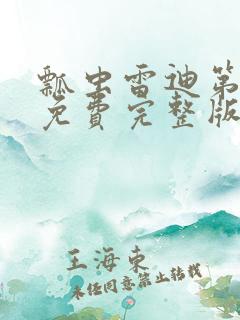 瓢虫雷迪第
免费完整版
王海东
未经同意禁止转载